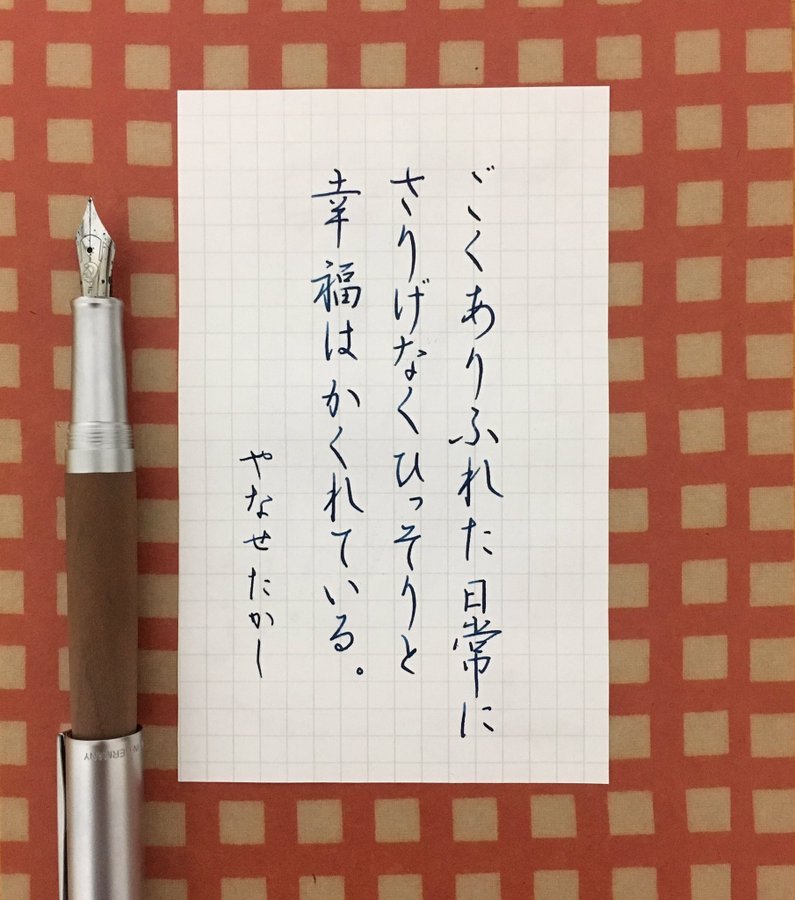 ごくありふれた日常に
さりげなくひっそりと
幸福はかくれている。
やなせたかし
GERMANY